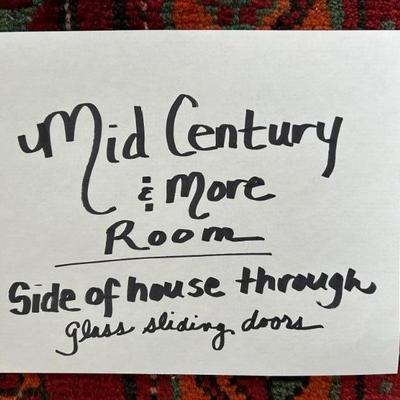 Mid Century
& More
Room
Side of house through
glass sliding doors